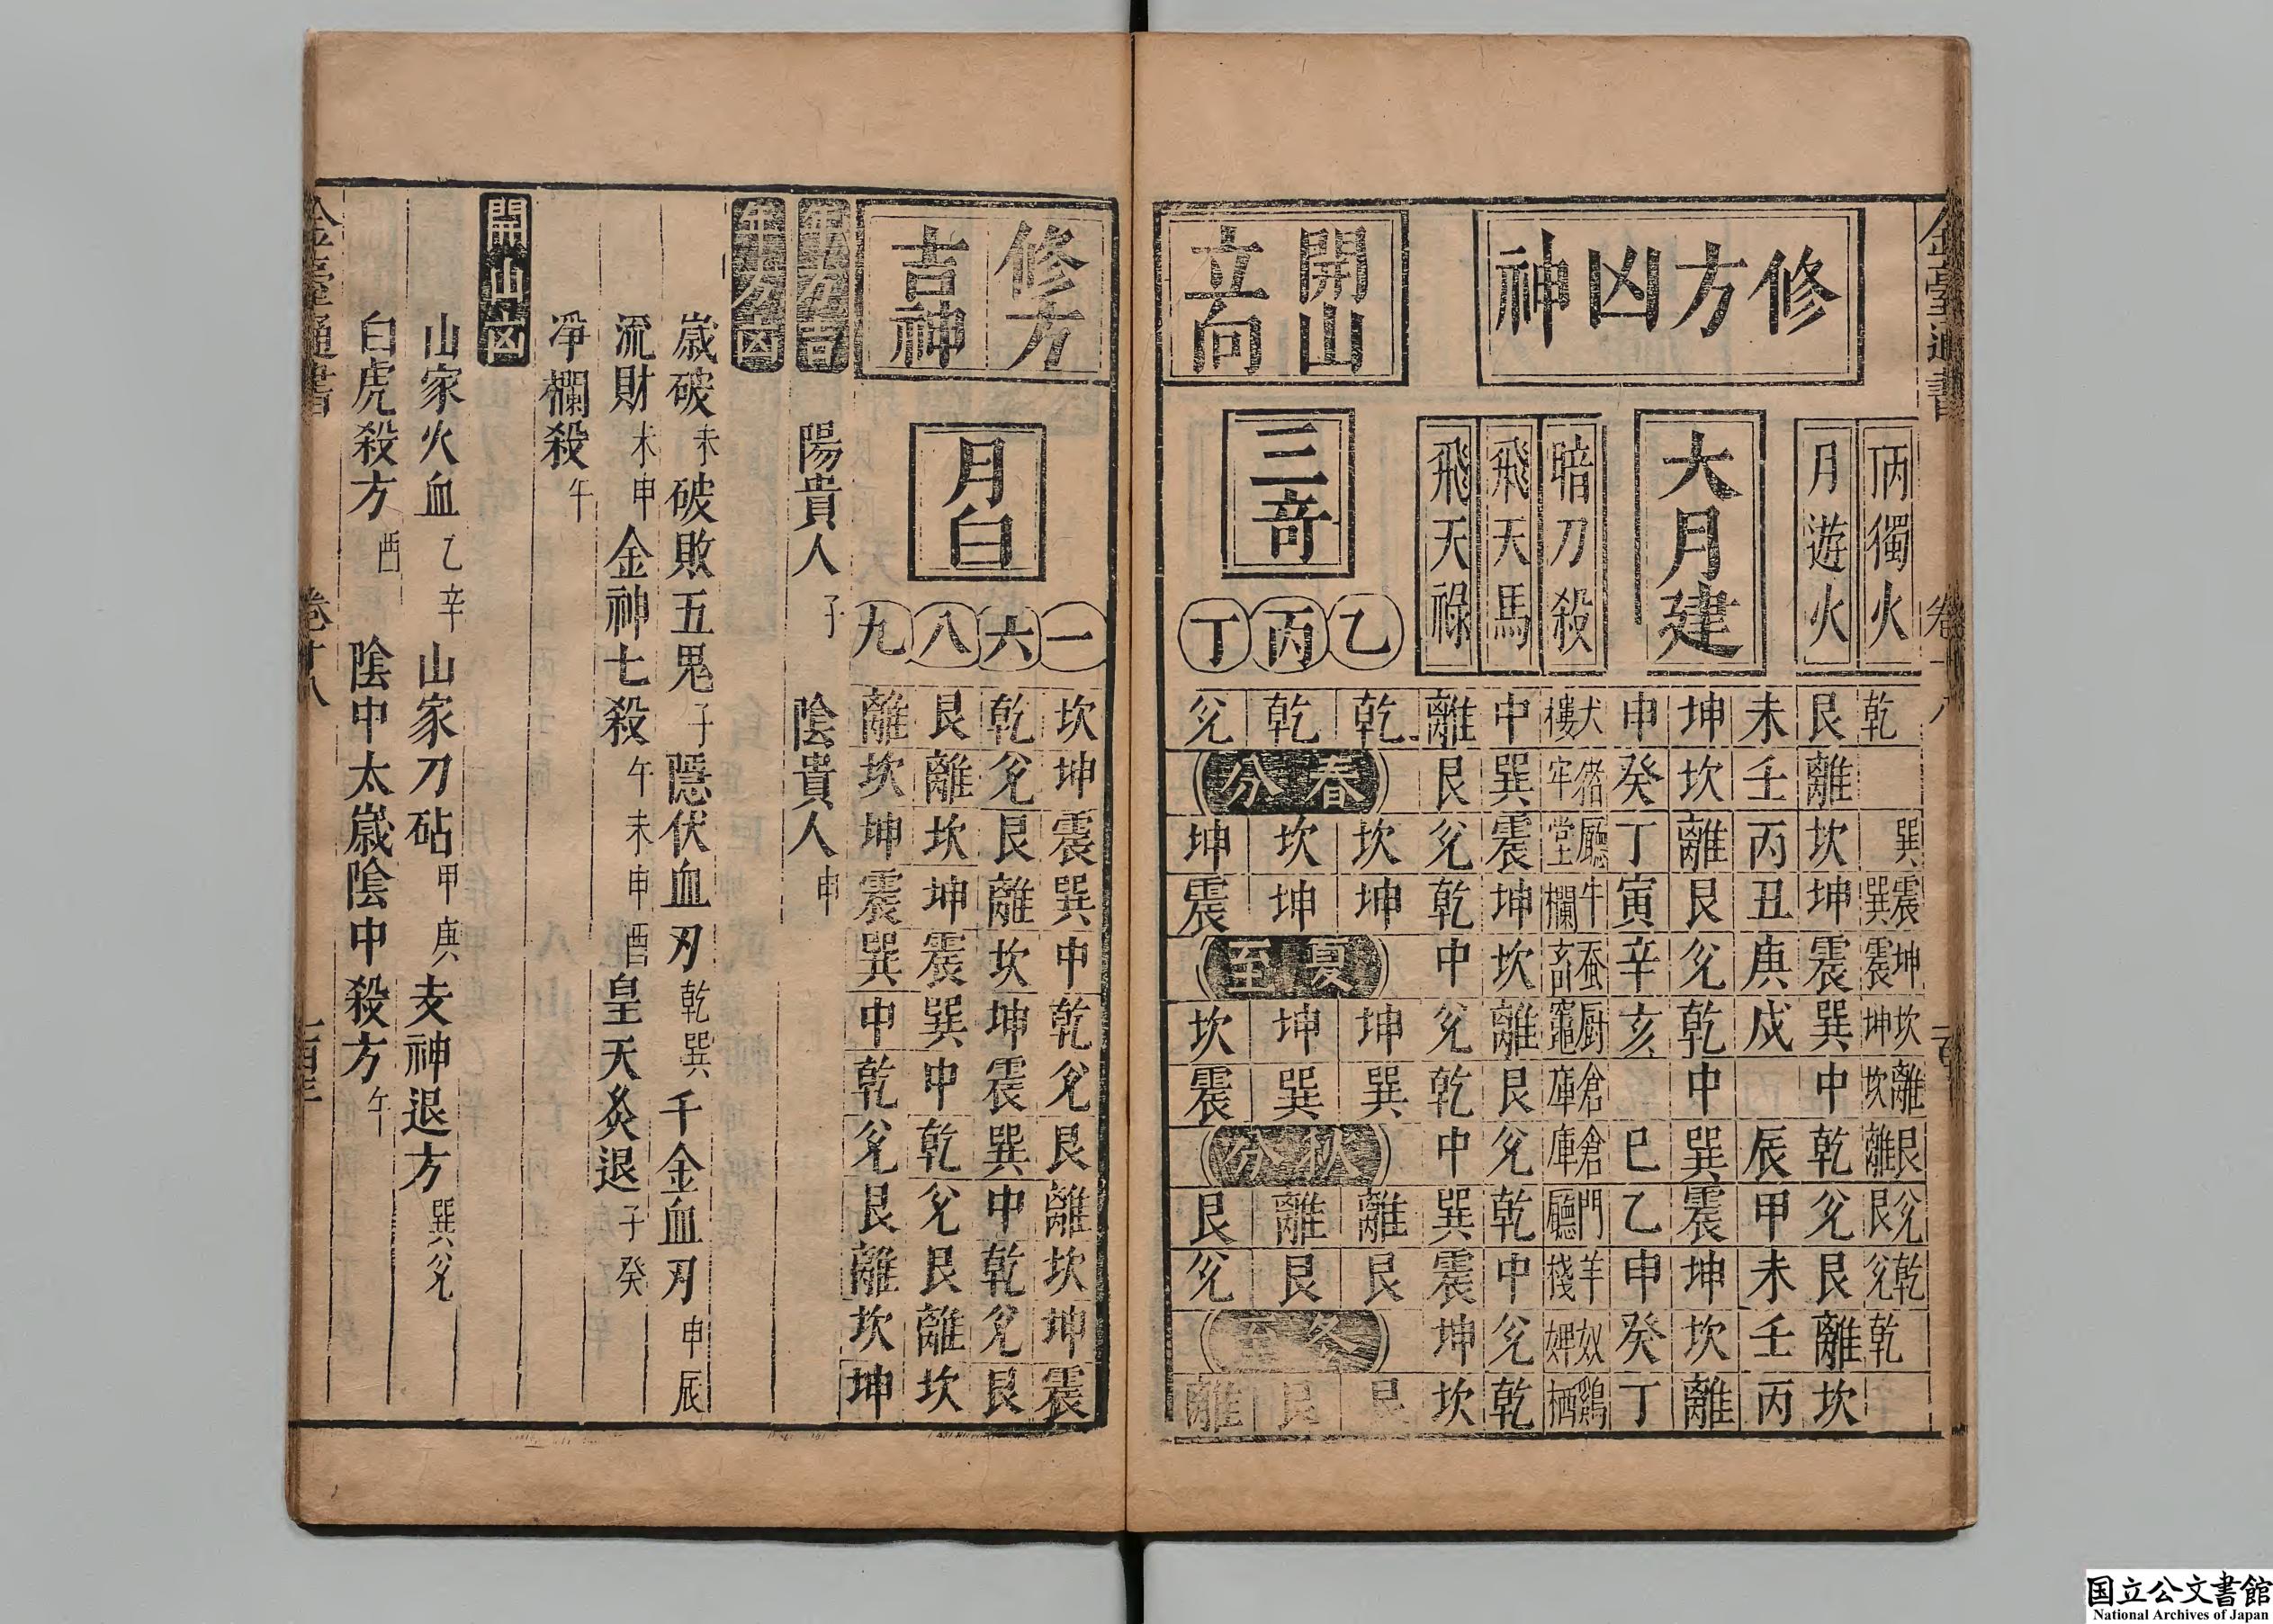 修方凶神
開山
立向
丙獨火
乾
巽
震巽
坤震
坎坤
離坎
艮離
兊艮
乾兊
乾
月遊火
艮離坎坤震巽中乾兊艮離坎
大月建
未壬丙丑庚戌
辰甲未壬丙
坤坎離艮兊乾中巽震坤坎離
申癸丁寅辛亥
巳乙申癸丁
暗刀殺
犬樓
猪牢
廳堂
牛欄
蚕畜
厨竈
倉庫
倉庫
門廳
羊棧
奴婢
鷄栖
飛天馬
中巽震坤坎離艮兊乾中兊乾
飛天祿
離艮兊乾中兊乾中巽震坤坎
三竒
乙
乾
坎坤
坤巽
離艮
艮
丙
乾
坎坤
坤巽
離艮
艮
丁
兊
坤震
坎震
艮兊
離
春分
夏至
秋分
冬至
修方
吉神
月白
一
坎坤震巽中乾兊艮離坎坤震
六
乾兊艮離坎坤震巽中乾兊艮
八
艮離坎坤震巽中乾兊艮離坎
九
離坎坤震巽中乾兊艮離坎坤
年方吉
陽貴人 子 陰貴人 申
年方凶
歲破 未 破敗五鬼 子 隱伏血刃 乾巽 千金血刃 申辰
流財 未申 金神七殺 午未申酉 皇天炙退 子癸
凈欄殺 午
開山凶
山家火血 乙辛 山家刀砧 甲庚 支神退方 巽兊
白虎殺方 酉 陰中太歲陰中殺方 午
金臺通書 卷十八